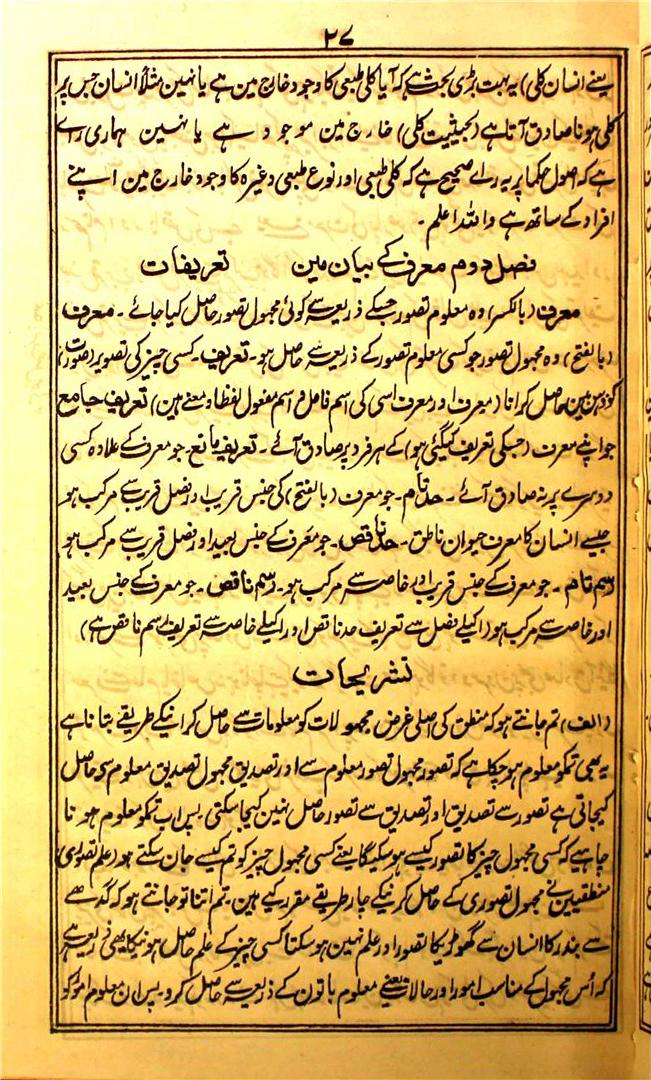 ۲۷
یعنے انسان کلی) یہ بہت بڑی بحث ہے کہ آیا کلی طبعی کا وجود خارج مین ہے یا نہین مثلاً انسان جس پر
کلی ہونا صادق آتا ہے (بحیثیت کلی) خارج مین موجود ہے یا نہین ہماری راے
ہے کہ اصول حکما پر یہ راے صحیح ہے کہ کلی طبعی اور نوع طبعی وغیرہ کا وجود خارج مین اپنے
افراد کے ساتھ ہے واللہ اعلم۔
فصل دوم معرف کے بیان مین تعریفات
معرف (بالکسر) وہ معلوم تصور جسکے ذریعہ سے کوئی مجہول تصور حاصل کیا جائے۔ معرف
(بالفتح) وہ مجہول تصور جو کسی معلوم تصور کے ذریعہ سے حاصل ہو۔ تعریف۔ کسی چیز کی تصویر (صورت)
کو ذہن مین حاصل کرانا (معرف اور معرف اسی کی اسم فاعل و اسم مفعول لفظاً و معنے ہین) تعریف جامع
جو اپنے معرف (جسکی تعریف کیگئی ہو) کے ہر فرد پر صادق آئے۔ تعریف مانع۔ جو معرف کے علاوہ کسی
دوسرے پر نہ صادق آئے۔ حد تام۔ جو معرف (بالفتح) کی جنس قریب اور فصل قریب سے مرکب ہو
جیسے انسان کا معرف حیوان ناطق۔ حد ناقص۔ جو معرف کے جنس بعید اور فصل قریب سے مرکب ہو
رسم تام۔ جو معرف کے جنس قریب اور خاصہ سے مرکب ہو۔ رسم ناقص۔ جو معرف کے جنس بعید
اور خاصہ سے مرکب ہو (اکیلے فصل سے تعریف حد ناقص اور اکیلے خاصہ سے تعریف رسم ناقص ہے)
تشریحات
(الف) تم جانتے ہو کہ منطق کی اصلی غرض مجہولات کو معلومات سے حاصل کرانیکے طریقے بتانا ہے
یہ بھی تمکو معلوم ہو چکا ہے کہ تصور مجہول تصور معلوم سے اور تصدیق مجہول تصدیق معلوم سے حاصل
کیجاتی ہے تصور سے تصدیق اور تصدیق سے تصور حاصل نہین کیجا سکتی پس اب تمکو معلوم ہونا
چاہیے کہ کسی مجہول چیز کا تصور کیسے ہو سکیگا یعنے کسی مجہول چیز کو تم کیسے جان سکتے ہو (علم تصوری)
منطقیین نے مجہول تصوری کے حاصل کرنیکے چار طریقے مقرر کیے ہین۔ تم اتنا تو جانتے ہو کہ گدھے
سے بندر کا انسان سے گھوڑیکا تصور اور علم نہین ہو سکتا کسی چیز کے علم حاصل ہونیکا یہی ذریعہ ہے
کہ اُس مجہول کے مناسب امور اور حالات یعنے معلوم باتون کے ذریعہ سے حاصل کرو۔ پس ان معلوم امور کو